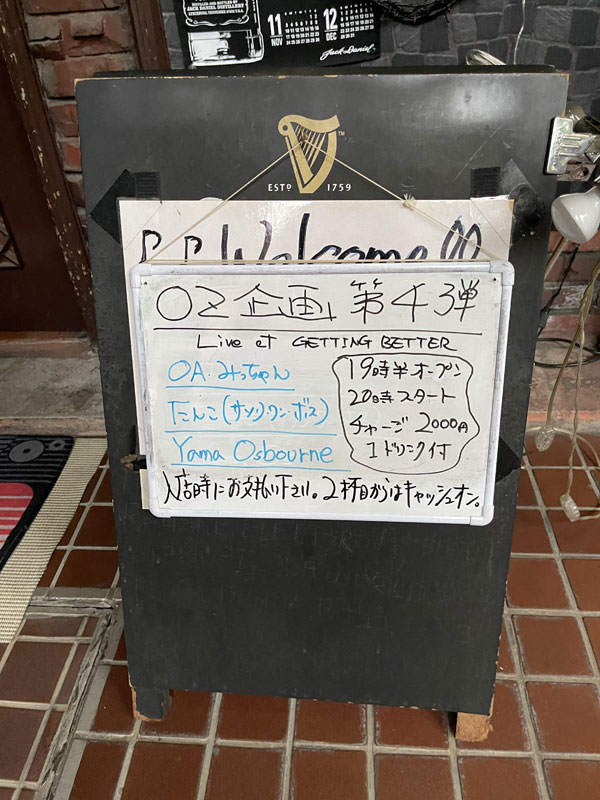 BOTTLED AND BOTTLED BY
JACK DANIEL DISTILLERY
11 NOV
12 DEC
Jack Daniel's
ESTD 1759
TM
Welcome!!
OZ企画 第4弾
Live at GETTING BETTER
OA.みっちゃん
たんこ(サンソンワン・ボス)
Yama Osbourne
19時半オープン
20時スタート
チャージ 2000円
1ドリンク付
入店時にお支払い下さい。2杯目からはキャッシュオン。